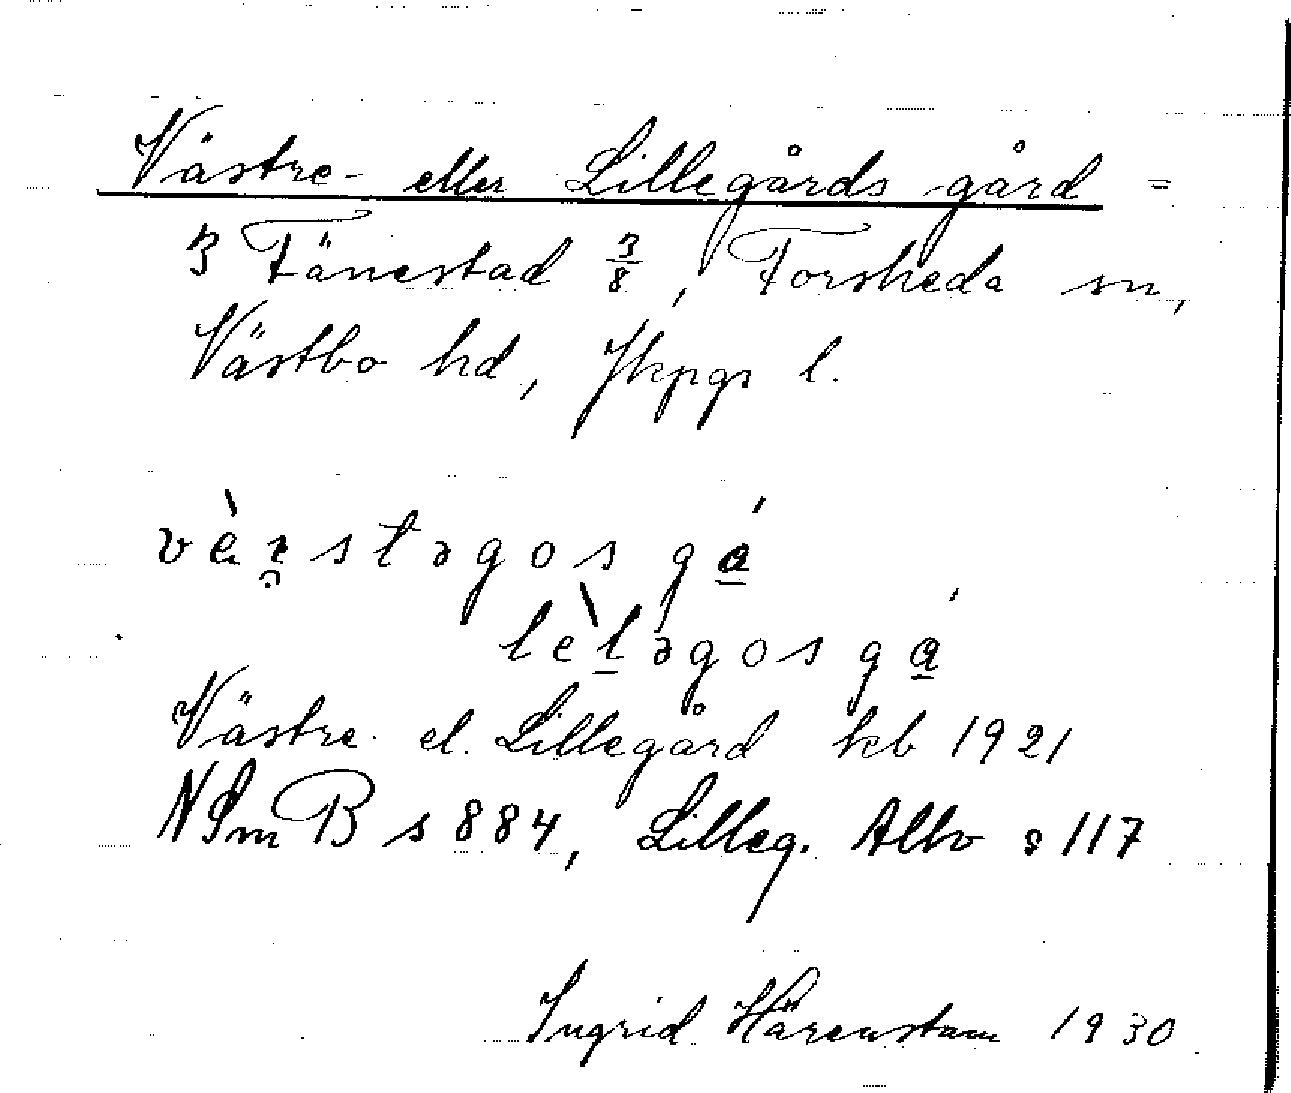 Västre- eller Lillegårds gård =
3 Tånestad 3/8, Forsheda sn,
Västbo hd, Jkpgs l.
vὲ̀stəgos gá
lèləgos gá
Västre- el. Lillegård kb 1921
NSmB s 884, Lilleg. Allv s 117
Ingrid Härenstam 1930